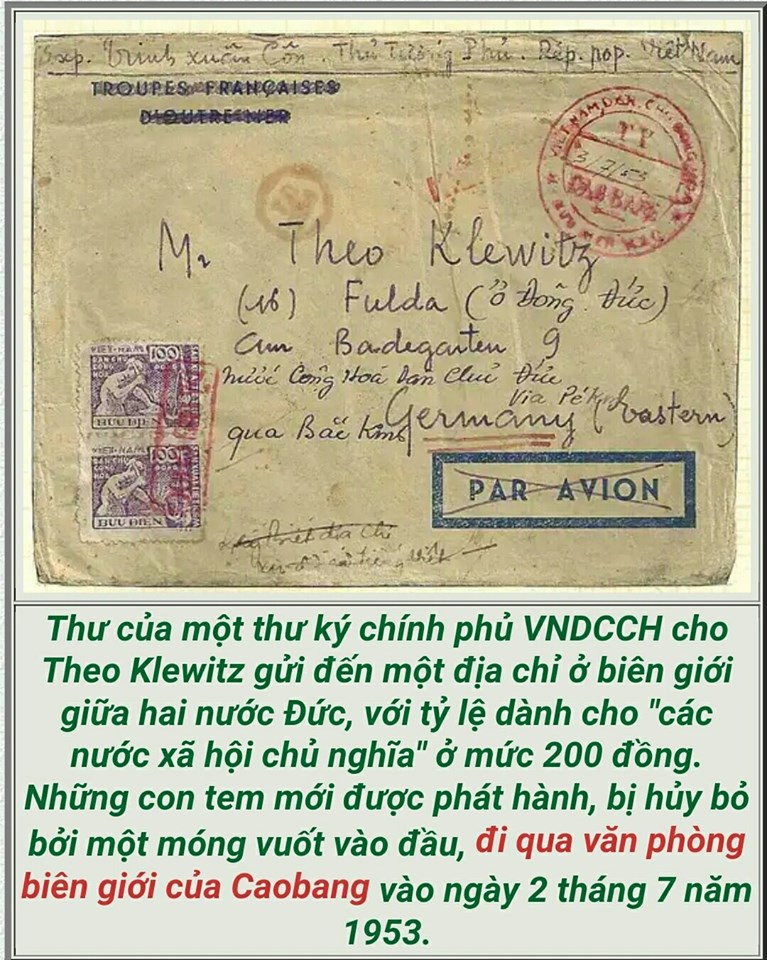 Exp. Trinh Xuân Côn. Thủ Tướng Phủ. Rép. pop. Việt Nam
TROUPES FRANÇAISES
D'OUTRE-MER
VIET NAM DAN CHU CONG HOA
3/7/53
CAO BANG
Mr Theo Klewitz
(16) Fulda (ở Đông Đức)
am Badegarten 9
nước Cộng Hoá Dan Chủ Đức
Via Pékin
qua Bắc Kinh Germany (Eastern)
VIET-NAM
DAN CHU
CONG
HOA
100
BUU ĐIEN
VIET-NAM
DAN CHU
CONG
HOA
100
BUU ĐIEN
PAR AVION
Thư của một thư ký chính phủ VNDCCH cho
Theo Klewitz gửi đến một địa chỉ ở biên giới
giữa hai nước Đức, với tỷ lệ dành cho "các
nước xã hội chủ nghĩa" ở mức 200 đồng.
Những con tem mới được phát hành, bị hủy bỏ
bởi một móng vuốt vào đầu, đi qua văn phòng
biên giới của Caobang vào ngày 2 tháng 7 năm
1953.